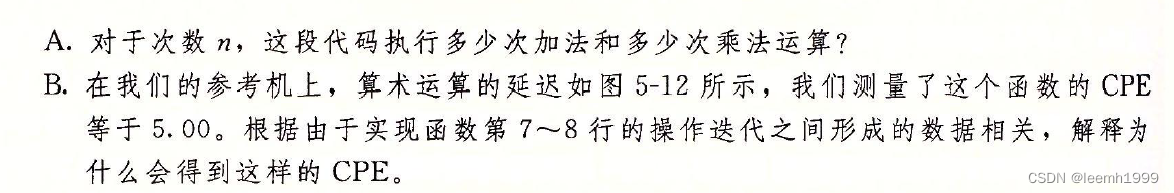 A. 对于次数 n，这段代码执行多少次加法和多少次乘法运算？
B. 在我们的参考机上，算术运算的延迟如图 5-12 所示，我们测量了这个函数的 CPE
等于 5.00。根据由于实现函数第 7～8 行的操作迭代之间形成的数据相关，解释为
什么会得到这样的 CPE。
CSDN @leemh1999